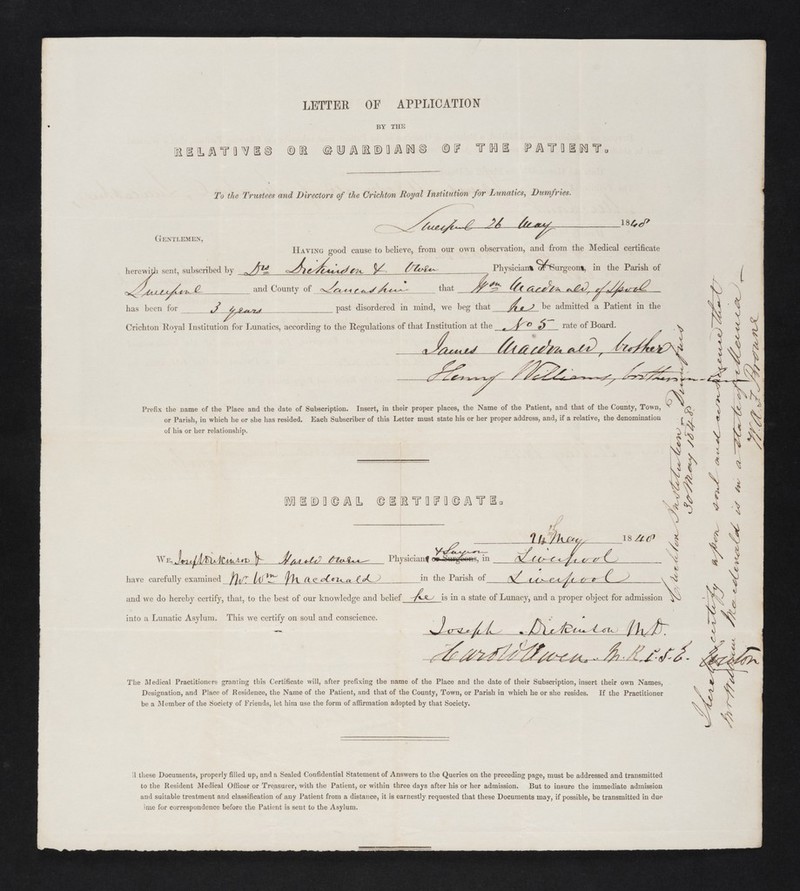 LETTER OF APPLICATION
BY THE
RELATIVES OR GUARDIANS OF THE PATIENT.
To the Trustees and Directors of the Crichton Royal Institution for Lunatics, Dumfries.
Liverpool 26 May 1848
GENTLEMEN,
HAVING good cause to believe, from our own observation, and from the Medical certificate
herewith sent, subscribed by Drs Dickinson & Owen Physician & Surgeon, in the Parish of
Liverpool and County of Lancashire that Wm Macdonald, of Lpool
has been for 3 years past disordered in mind, we beg that he be admitted a Patient in the
Crichton Royal Institution for Lunatics, according to the Regulations of that Institution at the No 5 rate of Board.
James Macdonald, brother
Henry Williams, brother in-law
Prefix the name of the Place and the date of Subscription. Insert, in their proper places, the Name of the Patient, and that of the County, Town,
or Parish, in which he or she has resided. Each Subscriber of this Letter must state his or her proper address, and, if a relative, the denomination
of his or her relationship.
MEDICAL CERTIFICATE.
24 May 1848
WE, Joseph Dickinson & Harold Owen Physician & Surgeon or Surgeons, in Liverpool
have carefully examined Mr Wm Macdonald in the Parish of Liverpool
and we do hereby certify, that, to the best of our knowledge and belief he is in a state of Lunacy, and a proper object for admission
into a Lunatic Asylum. This we certify on soul and conscience.
Joseph Dickinson M.D.
Harold Owen M.R.C.S.E.
The Medical Practitioners granting this Certificate will, after prefixing the name of the Place and the date of their Subscription, insert their own Names,
Designation, and Place of Residence, the Name of the Patient, and that of the County, Town, or Parish in which he or she resides. If the Practitioner
be a Member of the Society of Friends, let him use the form of affirmation adopted by that Society.
ll these Documents, properly filled up, and a Sealed Confidential Statement of Answers to the Queries on the preceding page, must be addressed and transmitted
to the Resident Medical Officer or Treasurer, with the Patient, or within three days after his or her admission. But to insure the immediate admission
and suitable treatment and classification of any Patient from a distance, it is earnestly requested that these Documents may, if possible, be transmitted in due
time for correspondence before the Patient is sent to the Asylum.
Crichton Institution Dumfries
30 May 1848
I hereby certify upon soul and conscience that
Mr William Macdonald is in a state of Mania –
W. A. F. Browne